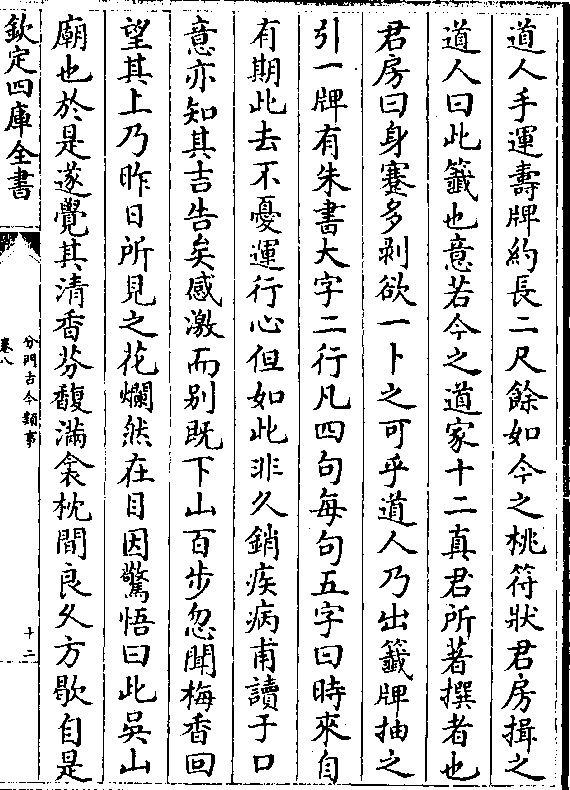 道人手運壽牌約長二尺餘如今之桃符狀君房揖之
道人曰此籤也意若今之道家十二真君所著撰者也
君房曰身蹇多剥欲一卜之可乎道人乃出籤牌抽之
引一牌有朱書大字二行凡四句每句五字曰時來自
有期此去不憂運行心但如此非久銷疾病甫讀于口
意亦知其吉告矣感激而别既下山百步忽聞梅香回
望其上乃昨日所見之花爛然在目因驚悟曰此吳山
廟也於是遂覺其清香芬馥滿衾枕間良久方歇自是
欽定四庫全書
分門古今類事
卷八
十二